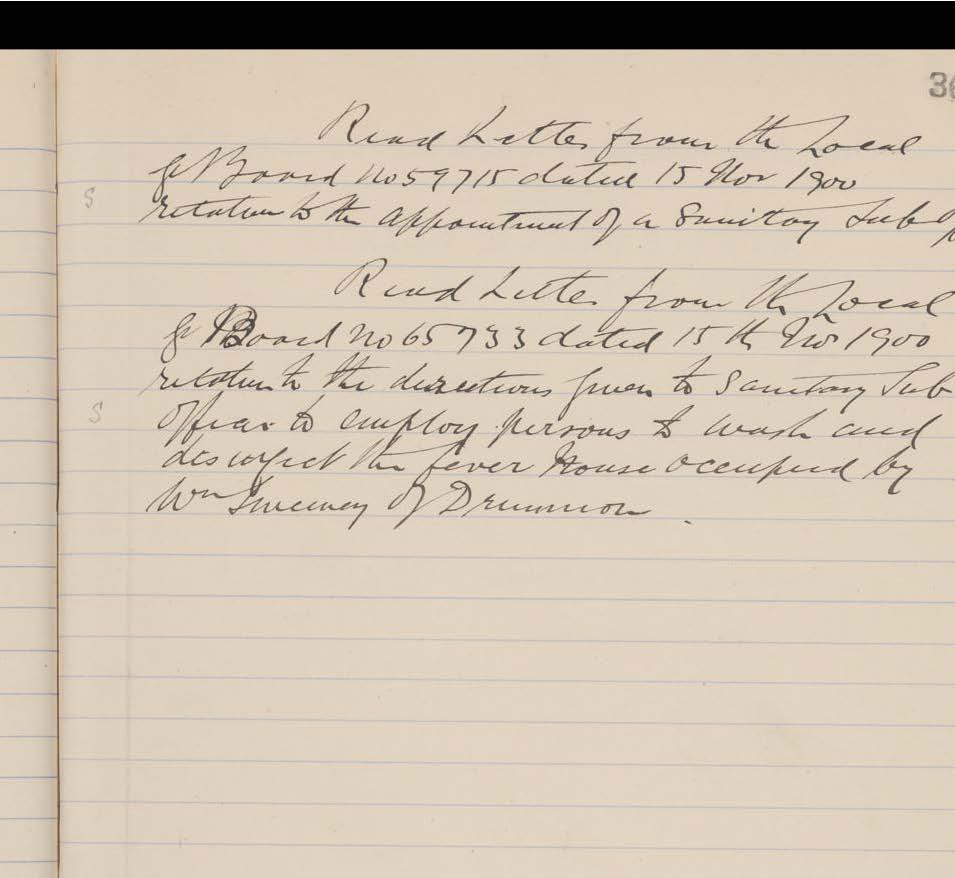 36
Read Letter from the Local
G Board No 59715 dated 15 Nov 1900
S
relative to the appointment of a Sanitary Sub
Read Letter from the Local
G Board No 65733 dated 15th Nov 1900
relative to the directions given to Sanitary Sub
S
Officer to employ persons to wash and
disinfect the fever House occupied by
Wm Sweeney of Drummon